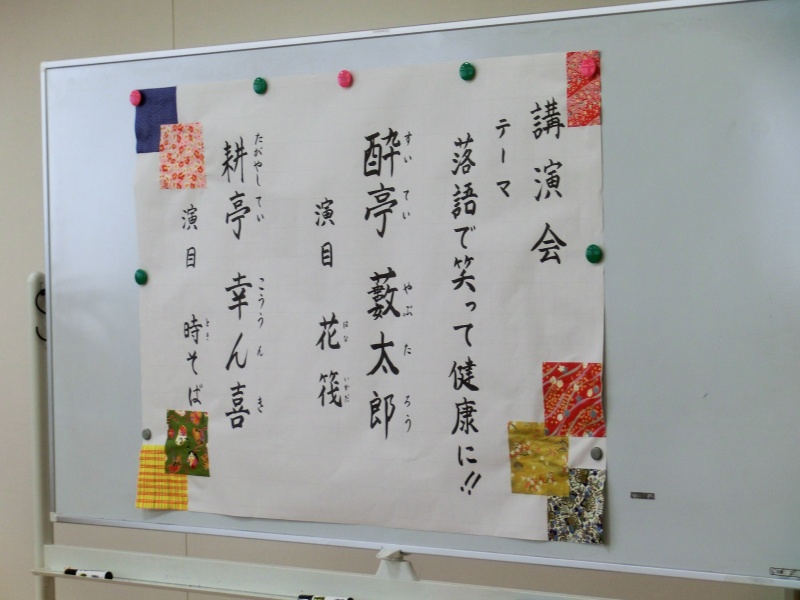 講演会
テーマ
落語で笑って健康に!!
すいてい やぶたろう
酔亭 藪太郎
演目 花筏
はな いかだ
たがやしてい こううんき
耕亭 幸ん喜
演目 時そば
とき